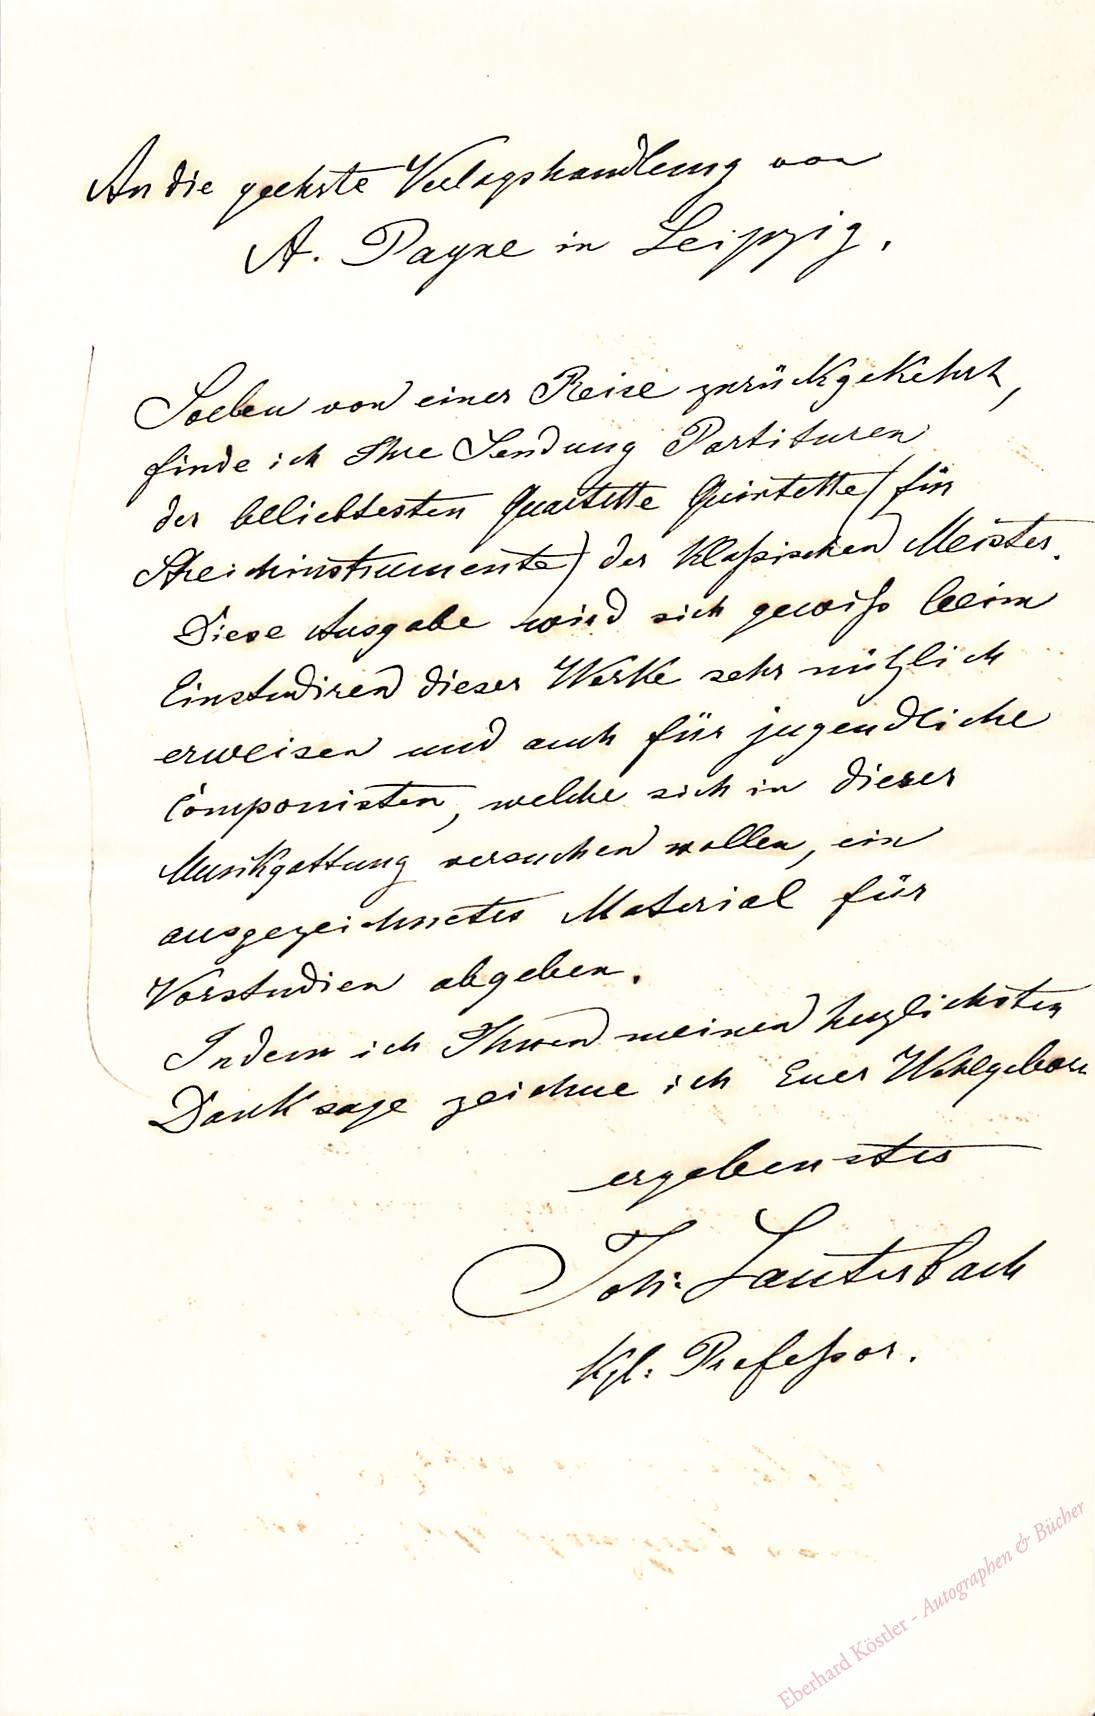 An die geehrte Verlagshandlung von
A. Payne in Leipzig.
Soeben von einer Reise zurückgekehrt,
finde ich Ihre Sendung Partituren
der beliebtesten Quartette Quintette (für
Streichinstrumente) der klaßischen Meister.
Diese Ausgabe wird sich gewiß beim
Einstudiren dieser Werke sehr nützlich
erweisen und auch für jugendliche
Componisten, welche sich in dieser
Musikgattung versuchen wollen, ein
ausgezeichnetes Material für
Vorstudien abgeben.
Indem ich Ihnen meinen herzlichsten
Dank sage zeichne ich Euer Wohlgeborn
ergebenster
Joh: Lauterbach
Kgl: Profeßor.
Eberhard Köstler - Autographen & Bücher